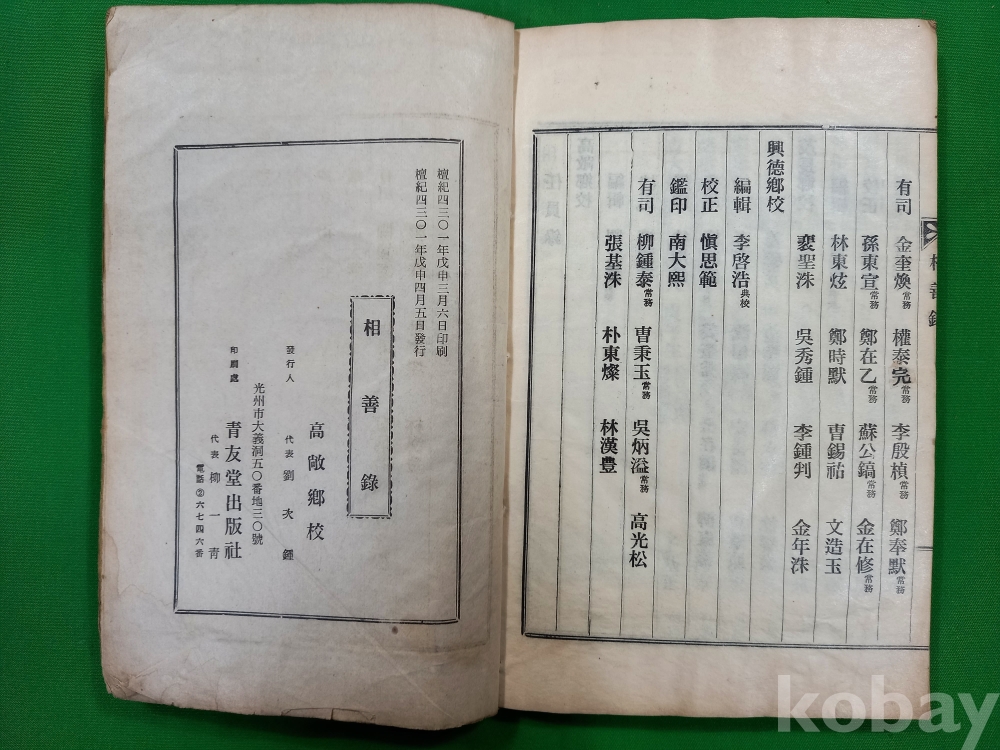 相善錄
有司 金奎煥常務 權泰完常務 李殷楨常務 鄭奉默常務
孫東宣常務 鄭在乙常務 蘇公鎬常務 金在修常務
林東炫 鄭時默 曺錫祐 文造玉
裵聖洙 吳秀鍾 李鍾判 金年洙
興德鄕校
編輯 李啓浩典校
校正 愼思範
鑑印 南大熙
有司 柳鍾泰常務 曺秉玉常務 吳炳溢常務 高光松
張基洙 朴東燦 林漢豊
檀紀四三０一年戊申三月六日印刷
檀紀四三０一年戊申四月五日發行
相善錄
高敞鄕校
發行人 代表 劉次鍾
光州市大義洞五０番地三０號
印刷處 靑友堂出版社
代表 柳一靑
電話②六七四六番
kobay